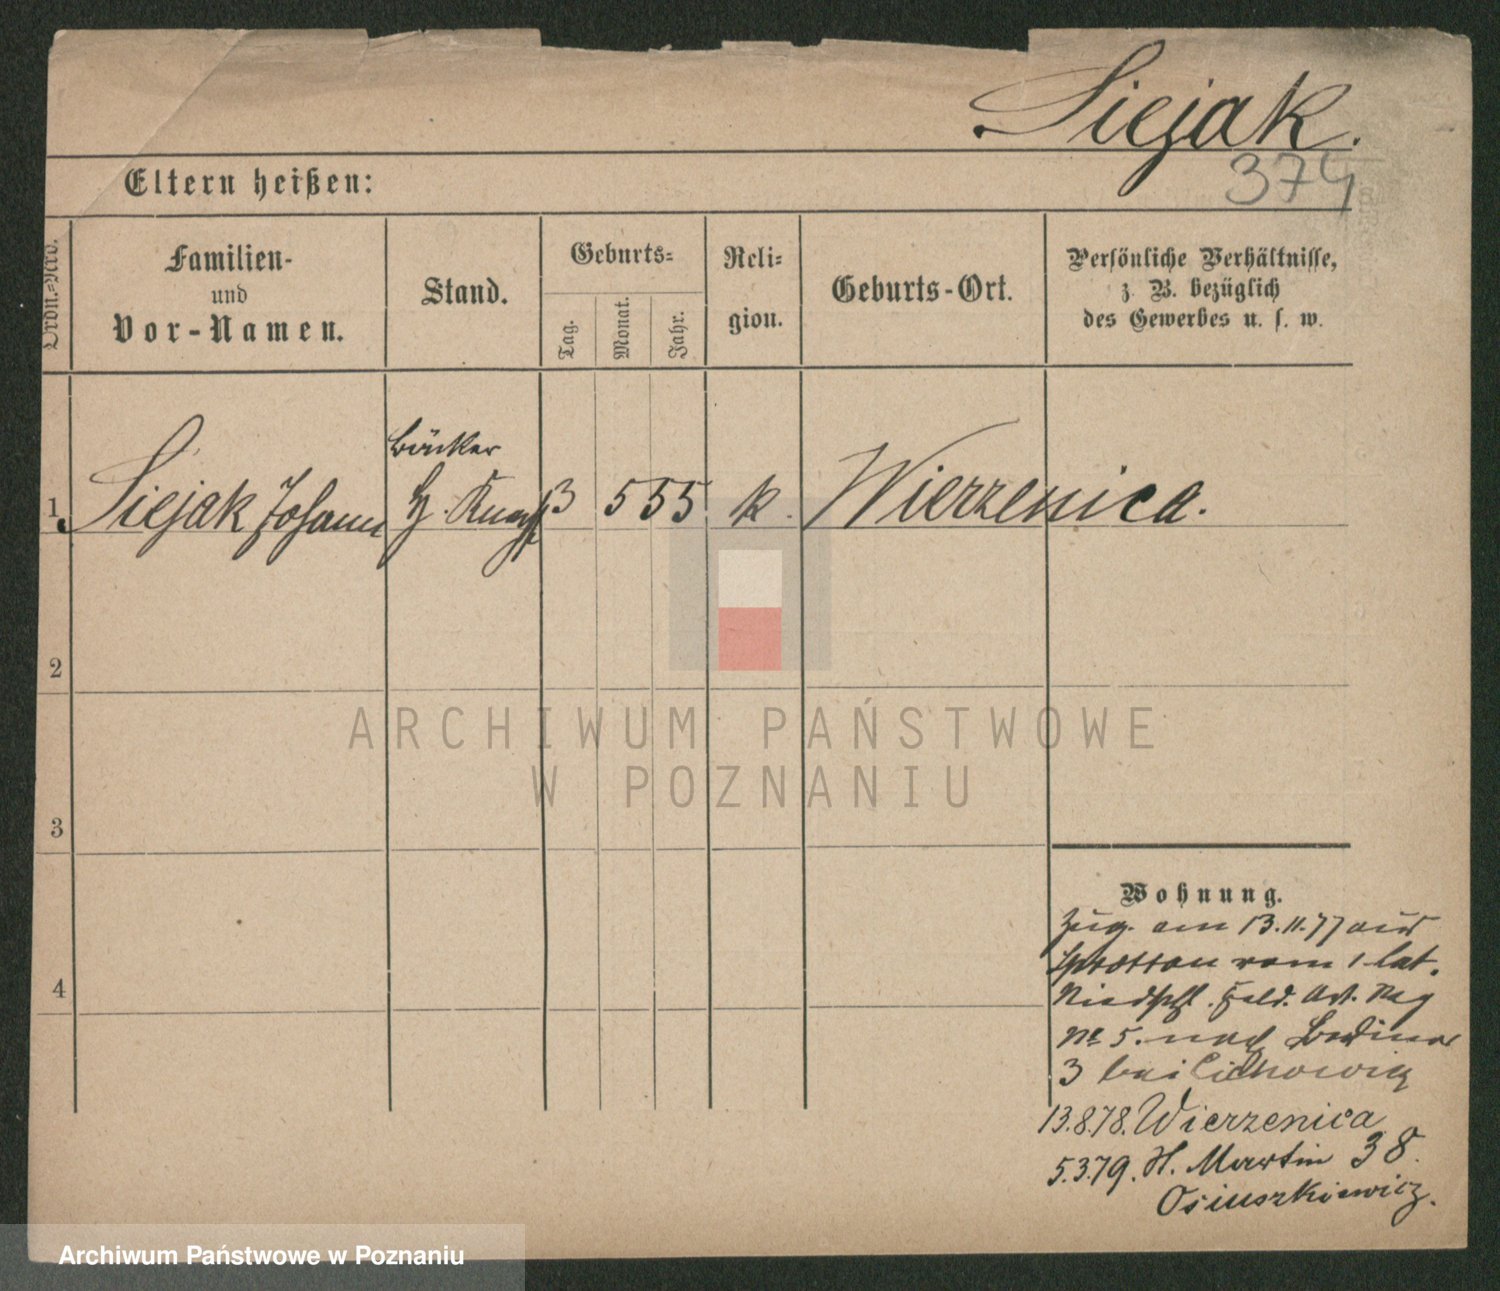 Siejak.
374
Eltern heißen:
Ordn.=Nro.
Familien-
und
Vor-Namen.
Stand.
Geburts=
Tag.
Monat.
Jahr.
Reli=
gion.
Geburts-Ort.
Persönliche Verhältnisse,
z. B. bezüglich
des Gewerbes u. s. w.
Bäcker
1 Siejak Johann 3 5 55 k. Wierzenica.
2
3
4
ARCHIWUM PAŃSTWOWE
W POZNANIU
Wohnung.
Zug. am 13.11.77 aus
Sprottau vom 1
Niedschl. Feld. Art. Reg
No 5. nach
3 bei Cichowicz
13.8.78. Wierzenica
5.3.79. St. Martin 38.
Osiuszkiewicz.
Archiwum Państwowe w Poznaniu